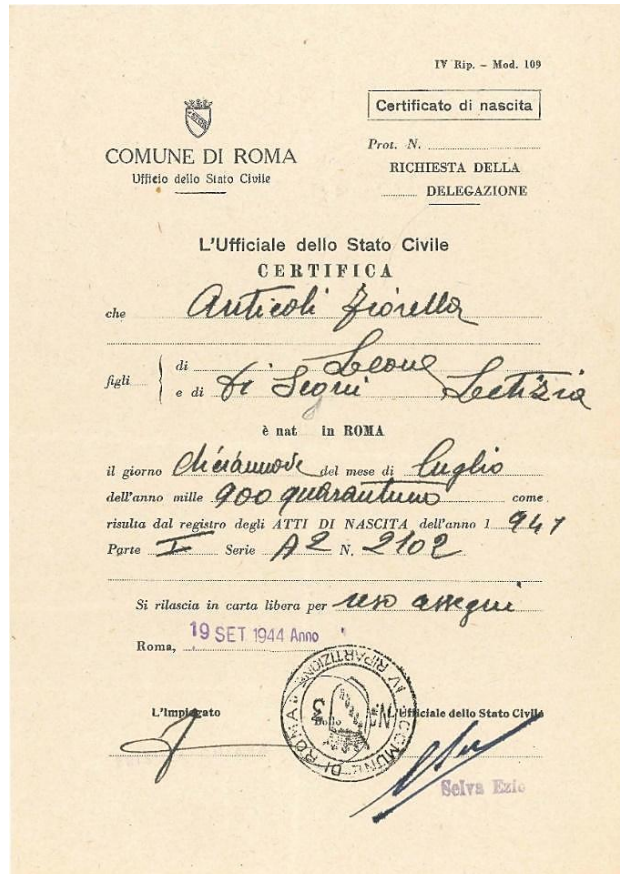 IV Rip. – Mod. 109
Certificato di nascita
COMUNE DI ROMA
Ufficio dello Stato Civile
Prot. N.
RICHIESTA DELLA
DELEGAZIONE
L'Ufficiale dello Stato Civile
CERTIFICA
che Anticoli Fiorella
figli di Leone
e di Di Segni Letizia
è nat in ROMA
il giorno diciannove del mese di luglio
dell'anno mille 900 quarantuno come
risulta dal registro degli ATTI DI NASCITA dell'anno 1 941
Parte I Serie A2 N. 2102
Si rilascia in carta libera per uso assegni
Roma, 19 SET 1944 Anno
COMUNE DI ROMA IV RIPARTIZIONE
Bollo
N. 3
L'Impiegato L'Ufficiale dello Stato Civile
Selva Ezio